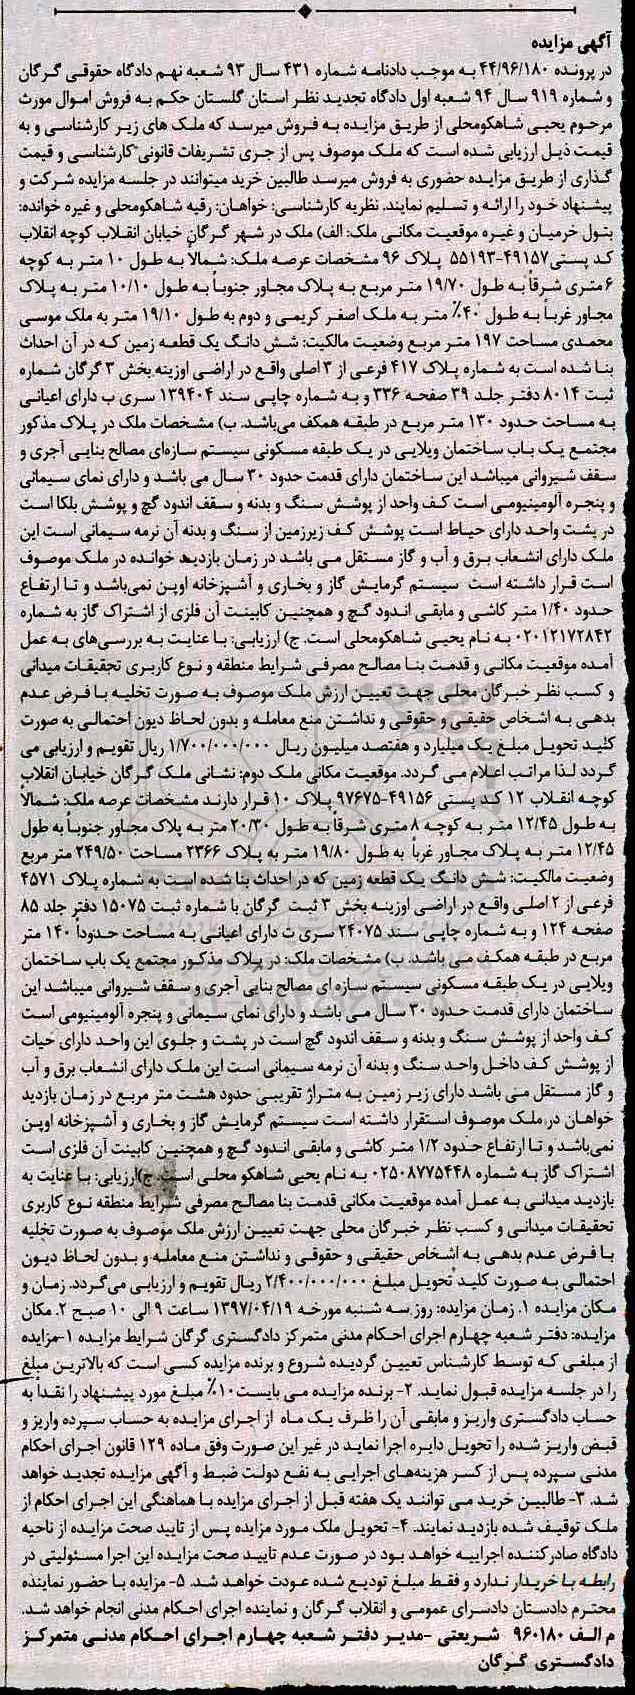 آگهی مزایده
در پرونده ۴۴/۹۶/۱۸۰ به موجب دادنامه شماره ۴۳۱ سال ۹۳ شعبه نهم دادگاه حقوقی گرگان
و شماره ۹۱۹ سال ۹۴ شعبه اول دادگاه تجدید نظر استان گلستان حکم به فروش اموال مورث
مرحوم یحیی شاهکومحلی از طریق مزایده به فروش میرسد که ملک های زیر کارشناسی و به
قیمت ذیل ارزیابی شده است که ملک موصوف پس از جری تشریفات قانونی کارشناسی و قیمت
گذاری از طریق مزایده حضوری به فروش میرسد طالبین خرید میتوانند در جلسه مزایده شرکت و
پیشنهاد خود را ارائه و تسلیم نمایند. نظریه کارشناسی: خواهان: رقیه شاهکومحلی و غیره خوانده:
بتول خرمیان و غیره موقعیت مکانی ملک: الف) ملک در شهر گرگان خیابان انقلاب کوچه انقلاب
کد پستی ۴۹۱۵۷-۵۵۱۹۳ پلاک ۹۶ مشخصات عرصه ملک: شمالاً به طول ۱۰ متر به کوچه
۶ متری شرقاً به طول ۱۹/۷۰ متر مربع به پلاک مجاور جنوباً به طول ۱۰/۱۰ متر به پلاک
مجاور غرباً به طول ۴۰٪ متر به ملک اصغر کریمی و دوم به طول ۱۹/۱۰ متر به ملک موسی
محمدی مساحت ۱۹۷ متر مربع وضعیت مالکیت: شش دانگ یک قطعه زمین که در آن احداث
بنا شده است به شماره پلاک ۴۱۷ فرعی از ۳ اصلی واقع در اراضی اوزینه بخش ۳ گرگان شماره
ثبت ۸۰۱۴ دفتر جلد ۳۹ صفحه ۳۳۶ و به شماره چاپی سند ۱۳۹۴۰۴ سری ب دارای اعیانی
به مساحت حدود ۱۳۰ متر مربع در طبقه همکف می‌باشد. ب) مشخصات ملک در پلاک مذکور
مجتمع یک باب ساختمان ویلایی در یک طبقه مسکونی سیستم سازه‌ای مصالح بنایی آجری و
سقف شیروانی میباشد این ساختمان دارای قدمت حدود ۳۰ سال می باشد و دارای نمای سیمانی
و پنجره آلومینیومی است کف واحد از پوشش سنگ و بدنه و سقف اندود گچ و پوشش بلکا است
در پشت واحد دارای حیاط است پوشش کف زیرزمین از سنگ و بدنه آن نرمه سیمانی است این
ملک دارای انشعاب برق و آب و گاز مستقل می باشد در زمان بازدید خوانده در ملک موصوف
است قرار داشته است سیستم گرمایش گاز و بخاری و آشپزخانه اوپن نمی‌باشد و تا ارتفاع
حدود ۱/۴۰ متر کاشی و مابقی اندود گچ و همچنین کابینت آن فلزی از اشتراک گاز به شماره
۰۲۰۱۲۱۷۲۸۴۲ به نام یحیی شاهکومحلی است. ج) ارزیابی: با عنایت به بررسی‌های به عمل
آمده موقعیت مکانی و قدمت بنا مصالح مصرفی شرایط منطقه و نوع کاربری تحقیقات میدانی
و کسب نظر خبرگان محلی جهت تعیین ارزش ملک موصوف به صورت تخلیه با فرض عدم
بدهی به اشخاص حقیقی و حقوقی و نداشتن منع معامله و بدون لحاظ دیون احتمالی به صورت
کلید تحویل مبلغ یک میلیارد و هفتصد میلیون ریال ۱/۷۰۰/۰۰۰/۰۰۰ ریال تقویم و ارزیابی می
گردد لذا مراتب اعلام می گردد. موقعیت مکانی ملک دوم: نشانی ملک گرگان خیابان انقلاب
کوچه انقلاب ۱۲ کد پستی ۴۹۱۵۶-۹۷۶۷۵ پلاک ۱۰ قرار دارند مشخصات عرصه ملک: شمالاً
به طول ۱۲/۴۵ متر به کوچه ۸ متری شرقاً به طول ۲۰/۳۰ متر به پلاک مجاور جنوباً به طول
۱۲/۴۵ متر به پلاک مجاور غرباً به طول ۱۹/۸۰ متر به پلاک ۲۳۶۶ مساحت ۲۴۹/۵۰ متر مربع
وضعیت مالکیت: شش دانگ یک قطعه زمین که در احداث بنا شده است به شماره پلاک ۴۵۷۱
فرعی از ۲ اصلی واقع در اراضی اوزینه بخش ۳ ثبت گرگان با شماره ثبت ۱۵۰۷۵ دفتر جلد ۸۵
صفحه ۱۲۴ و به شماره چاپی سند ۲۴۰۷۵ سری ت دارای اعیانی به مساحت حدوداً ۱۴۰ متر
مربع در طبقه همکف می باشد. ب) مشخصات ملک: در پلاک مذکور مجتمع یک باب ساختمان
ویلایی در یک طبقه مسکونی سیستم سازه ای مصالح بنایی آجری و سقف شیروانی میباشد این
ساختمان دارای قدمت حدود ۳۰ سال می باشد و دارای نمای سیمانی و پنجره آلومینیومی است
کف واحد از پوشش سنگ و بدنه و سقف اندود گچ است در پشت و جلوی این واحد دارای حیات
از پوشش کف داخل واحد سنگ و بدنه آن نرمه سیمانی است این ملک دارای انشعاب برق و آب
و گاز مستقل می باشد دارای زیر زمین به متراژ تقریبی حدود هشت متر مربع در زمان بازدید
خواهان در ملک موصوف استقرار داشته است سیستم گرمایش گاز و بخاری و آشپزخانه اوپن
نمی‌باشد و تا ارتفاع حدود ۱/۲ متر کاشی و مابقی اندود گچ و همچنین کابینت آن فلزی است
اشتراک گاز به شماره ۰۲۵۰۸۷۷۵۴۴۸ به نام یحیی شاهکو محلی است. ج)ارزیابی: با عنایت به
بازدید میدانی به عمل آمده موقعیت مکانی قدمت بنا مصالح مصرفی شرایط منطقه نوع کاربری
تحقیقات میدانی و کسب نظر خبرگان محلی جهت تعیین ارزش ملک موصوف به صورت تخلیه
با فرض عدم بدهی به اشخاص حقیقی و حقوقی و نداشتن منع معامله و بدون لحاظ دیون
احتمالی به صورت کلید تحویل مبلغ ۲/۴۰۰/۰۰۰/۰۰۰ ریال تقویم و ارزیابی می‌گردد. زمان و
مکان مزایده ۱. زمان مزایده: روز سه شنبه مورخه ۱۳۹۷/۰۴/۱۹ ساعت ۹ الی ۱۰ صبح ۲. مکان
مزایده: دفتر شعبه چهارم اجرای احکام مدنی متمرکز دادگستری گرگان شرایط مزایده ۱-مزایده
از مبلغی که توسط کارشناس تعیین گردیده شروع و برنده مزایده کسی است که بالاترین مبلغ
را در جلسه مزایده قبول نماید. ۲- برنده مزایده می بایست ۱۰٪ مبلغ مورد پیشنهاد را نقداً به
حساب دادگستری واریز و مابقی آن را ظرف یک ماه از اجرای مزایده به حساب سپرده واریز و
قبض واریز شده را تحویل دایره اجرا نماید در غیر این صورت وفق ماده ۱۲۹ قانون اجرای احکام
مدنی سپرده پس از کسر هزینه‌های اجرایی به نفع دولت ضبط و آگهی مزایده تجدید خواهد
شد. ۳- طالبین خرید می توانند یک هفته قبل از اجرای مزایده با هماهنگی این اجرای احکام از
ملک توقیف شده بازدید نمایند. ۴- تحویل ملک مورد مزایده پس از تایید صحت مزایده از ناحیه
دادگاه صادرکننده اجراییه خواهد بود در صورت عدم تایید صحت مزایده این اجرا مسئولیتی در
رابطه با خریدار ندارد و فقط مبلغ تودیع شده عودت خواهد شد. ۵- مزایده با حضور نماینده
محترم دادستان دادسرای عمومی و انقلاب گرگان و نماینده اجرای احکام مدنی انجام خواهد شد.
م الف ۹۶۰۱۸۰ شریعتی -مدیر دفتر شعبه چهارم اجرای احکام مدنی متمرکز
دادگستری گرگان